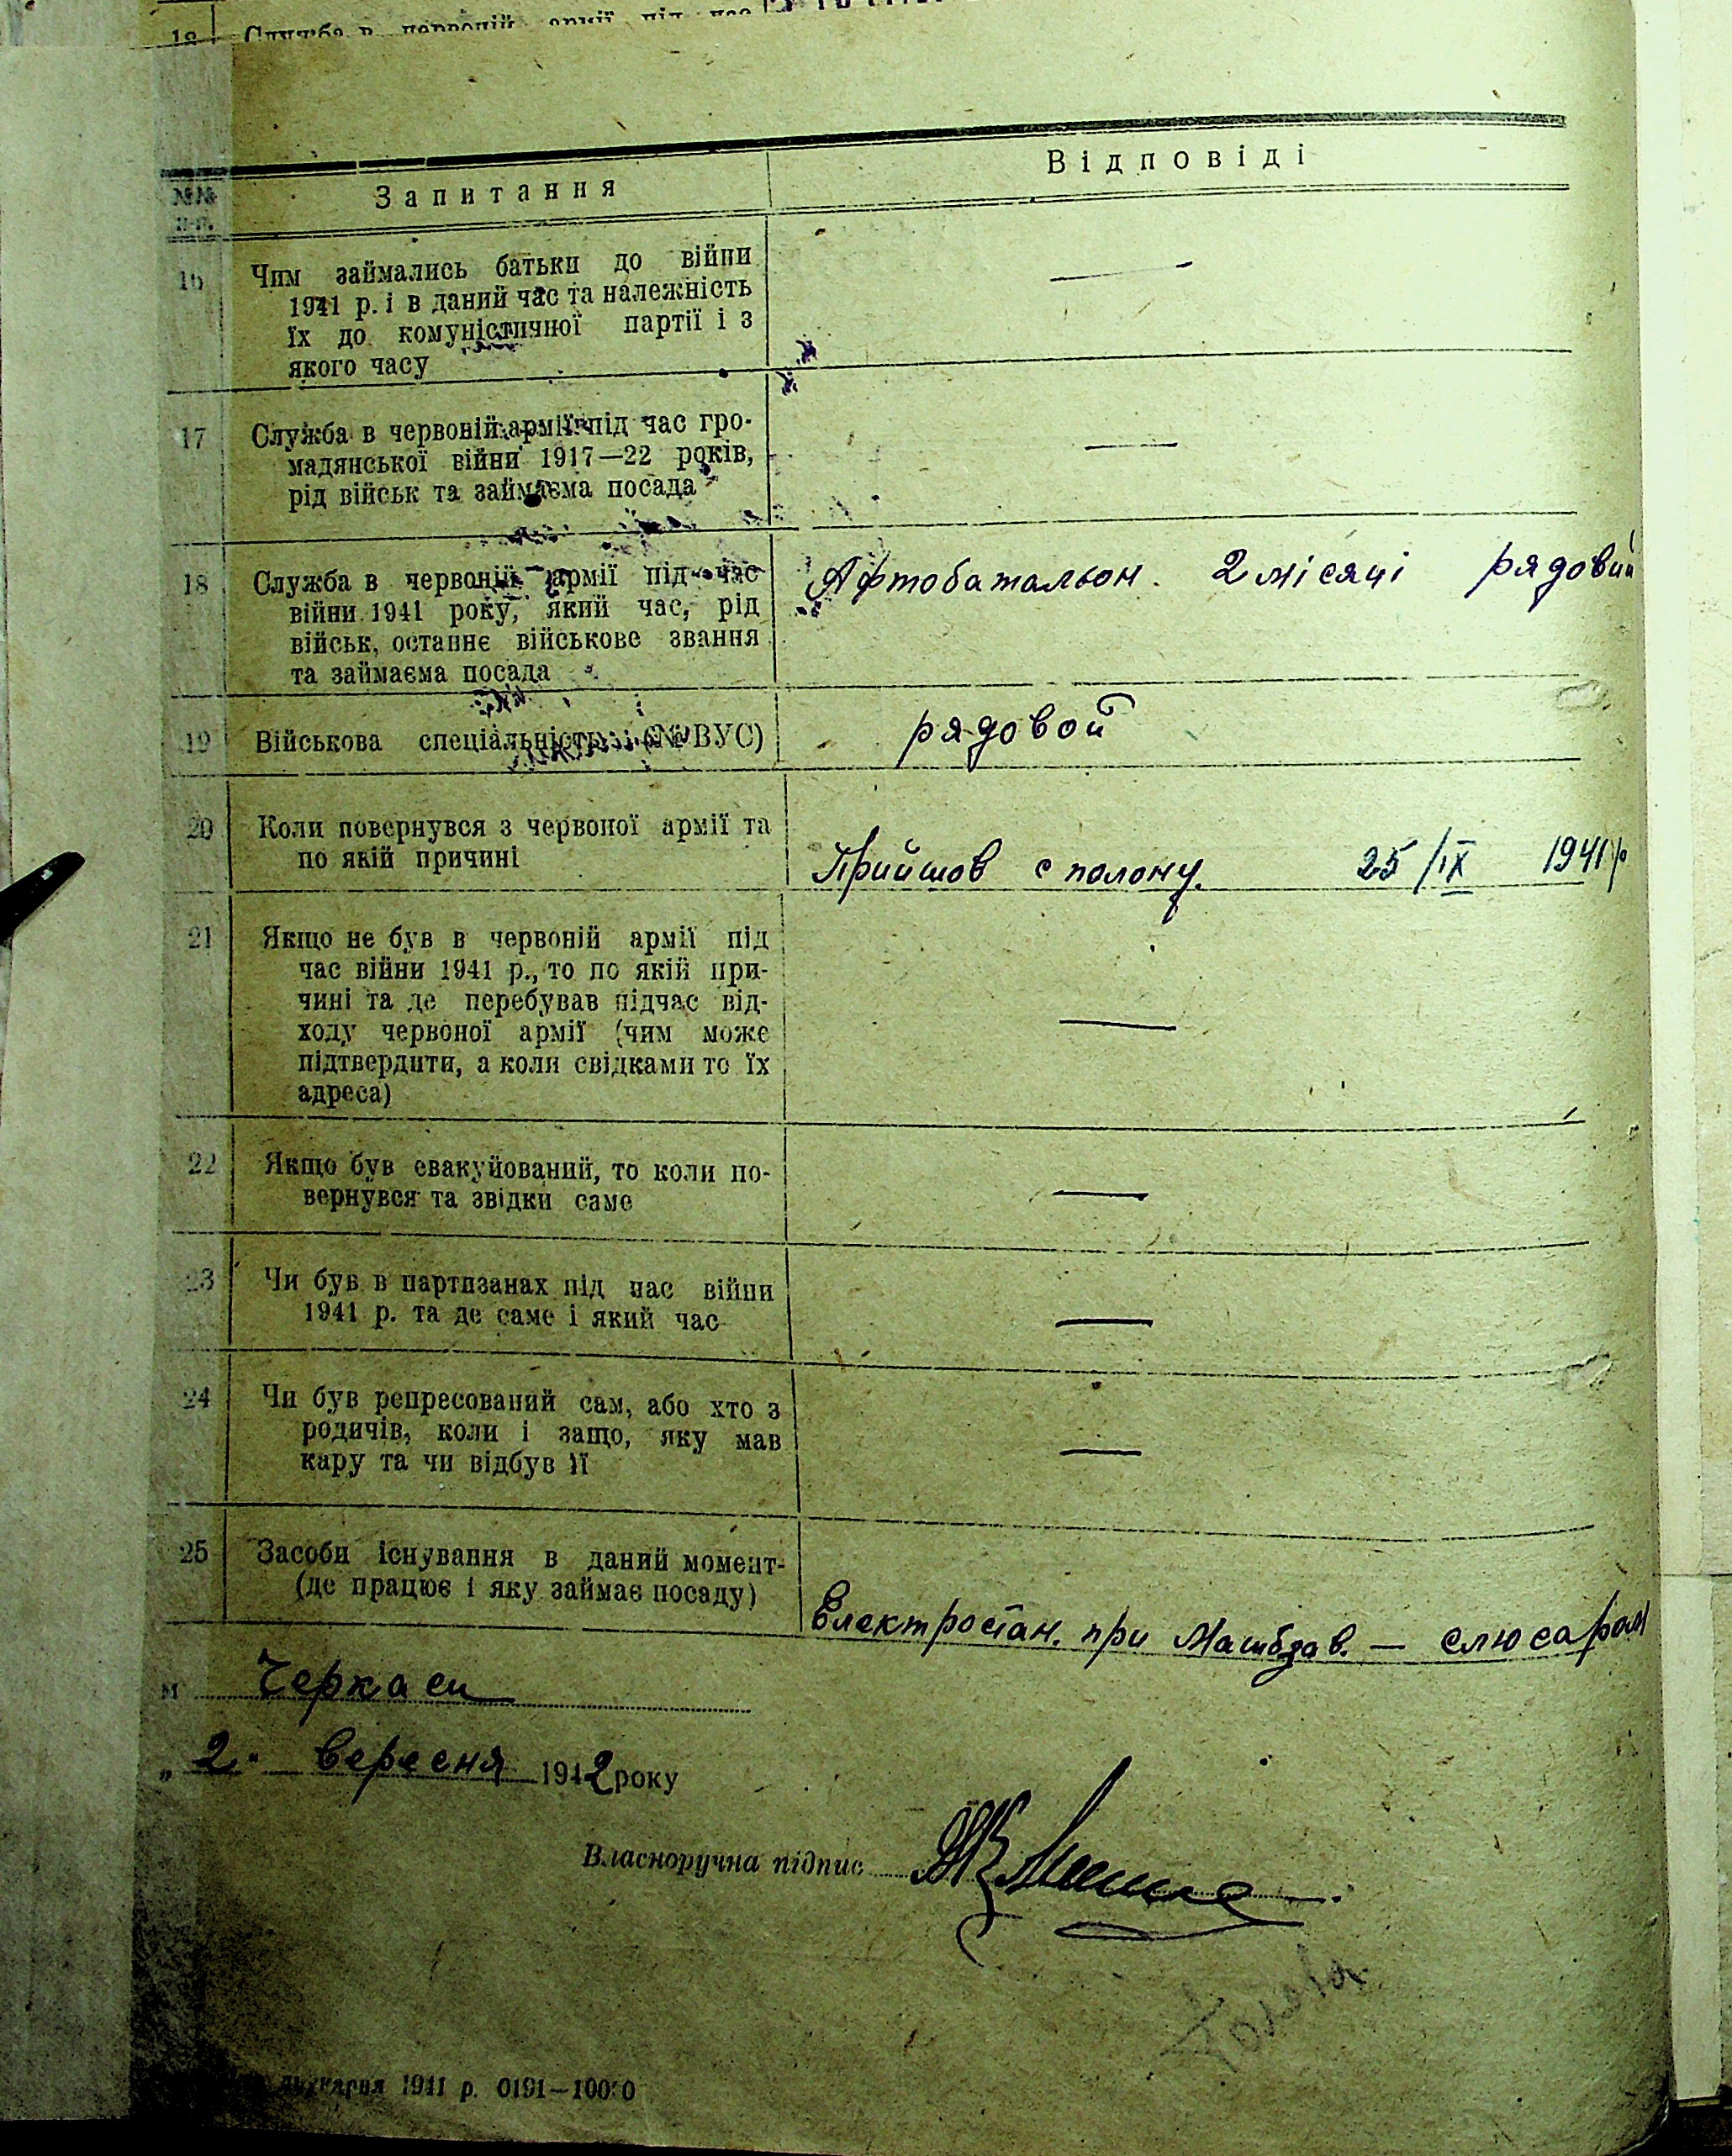 18 Служба в червоній армії під час
Запитання Відповіді
№№
п-п.
16 Чим займались батьки до війни
1941 р. і в даний час та належність
їх до комуністичної партії і з
якого часу —
17 Служба в червоній армії під час гро-
мадянської війни 1917—22 років,
рід військ та займаєма посада —
18 Служба в червоній армії під час Афтобатальон. 2 місяці рядовий
війни 1941 року, який час, рід
військ, останнє військове звання
та займаєма посада
19 Військова спеціальність (№ ВУС) рядовой
20 Коли повернувся з червоної армії та
по якій причині Прийшов с полону. 25/IX 1941 р
21 Якщо не був в червоній армії під
час війни 1941 р., то по якій при-
чині та де перебував підчас від-
ходу червоної армії (чим може
підтвердити, а коли свідками то їх
адреса) —
22 Якщо був евакуйований, то коли по-
вернувся та звідки саме —
23 Чи був в партизанах під час війни
1941 р. та де саме і який час —
24 Чи був репресований сам, або хто з
родичів, коли і защо, яку мав
кару та чи відбув її —
25 Засоби існування в даний момент-
(де працює і яку займає посаду) Електростан. при Машбзав. — слюсаром
м Черкаси
„2" вересня 1942 року
Власноручна підпис
друкарня 1941 р. 0191—10000